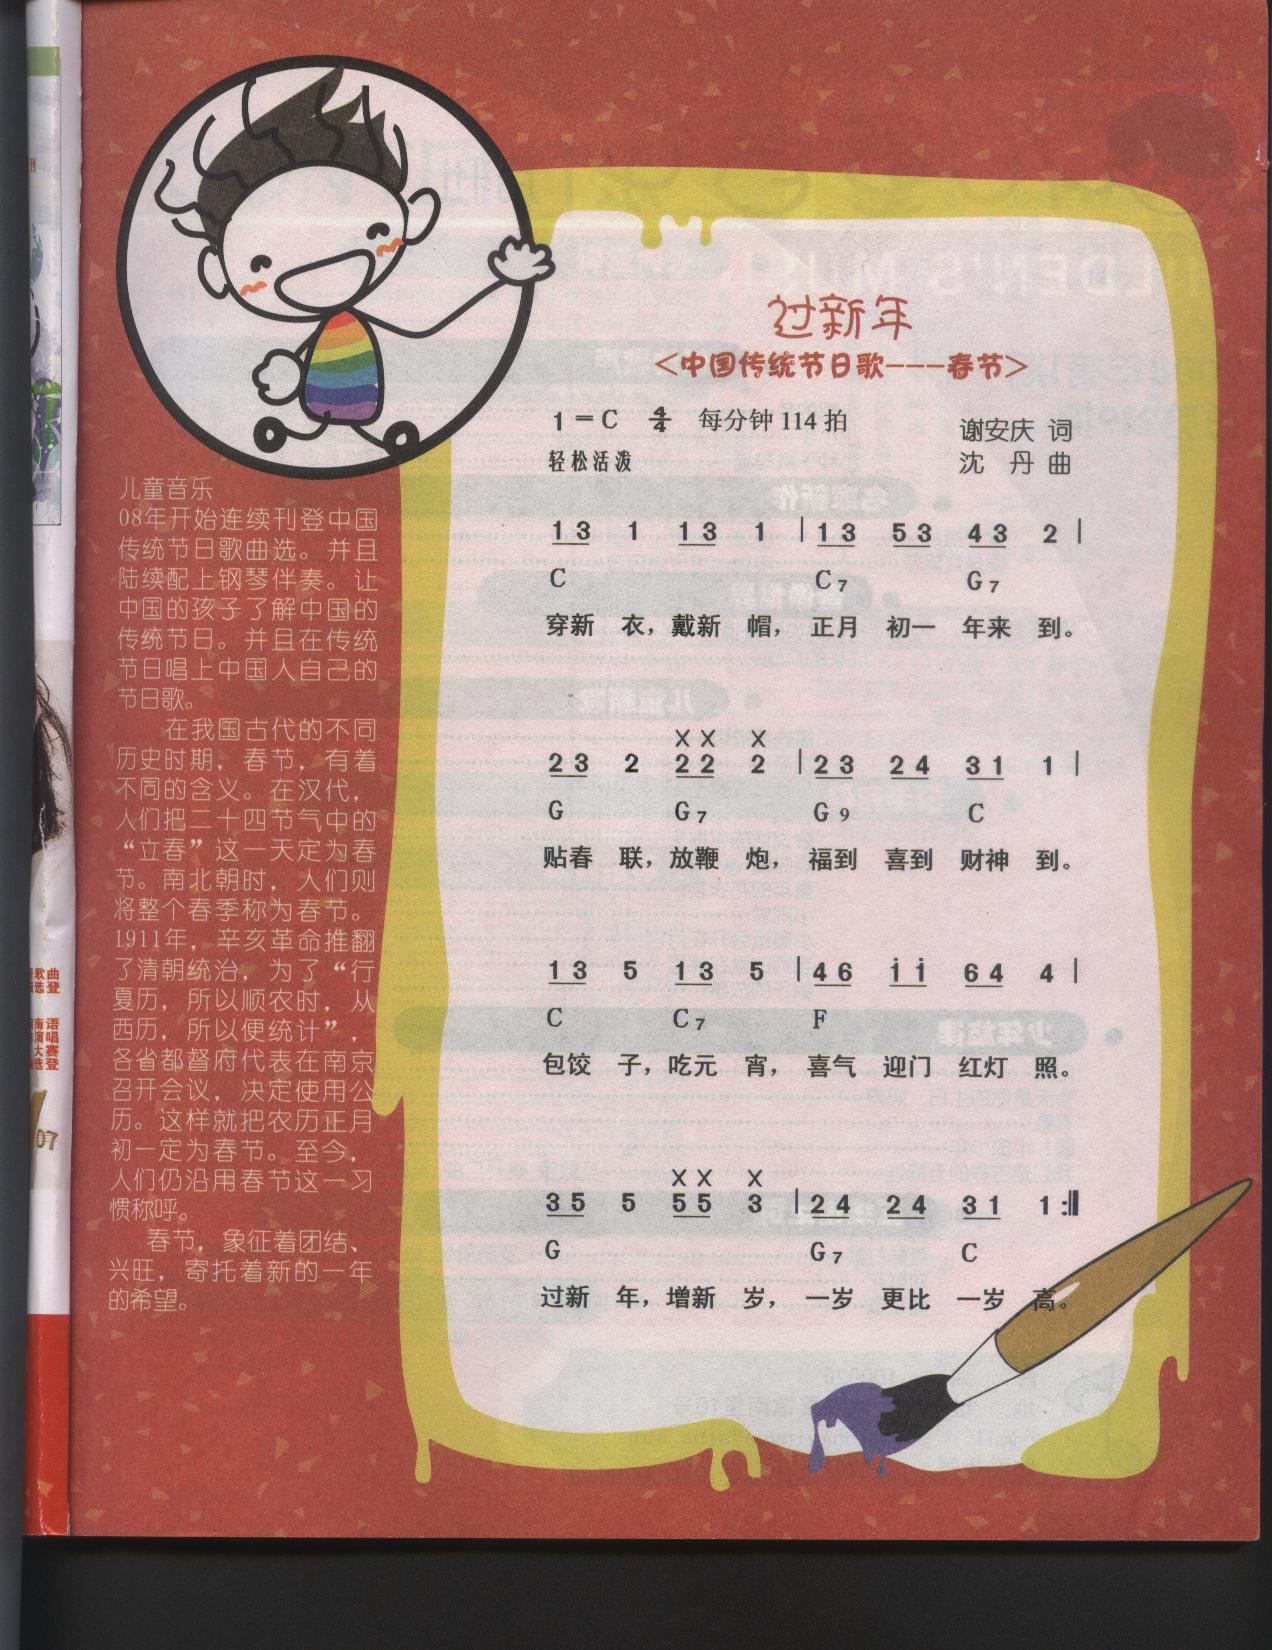 过新年
<中国传统节日歌---春节>
1=C 4/4 每分钟 114 拍
谢安庆 词
轻松活泼
沈 丹 曲
1 3 1 1 3 1 | 1 3 5 3 4 3 2 |
C C7 G7
穿新 衣，戴新 帽， 正月 初一 年来 到。
X X X
2 3 2 2 2 2 | 2 3 2 4 3 1 1 |
G G7 G9 C
贴春 联，放鞭 炮， 福到 喜到 财神 到。
1 3 5 1 3 5 | 4 6 i i 6 4 4 |
C C7 F
包饺 子，吃元 宵， 喜气 迎门 红灯 照。
X X X
3 5 5 5 5 3 | 2 4 2 4 3 1 1 :‖
G G7 C
过新 年，增新 岁， 一岁 更比 一岁 高。
儿童音乐
08年开始连续刊登中国
传统节日歌曲选。并且
陆续配上钢琴伴奏。让
中国的孩子了解中国的
传统节日。并且在传统
节日唱上中国人自己的
节日歌。
在我国古代的不同
历史时期，春节，有着
不同的含义。在汉代，
人们把二十四节气中的
“立春”这一天定为春
节。南北朝时，人们则
将整个春季称为春节。
1911年，辛亥革命推翻
了清朝统治，为了“行
夏历，所以顺农时，从
西历，所以便统计”，
各省都督府代表在南京
召开会议，决定使用公
历。这样就把农历正月
初一定为春节。至今，
人们仍沿用春节这一习
惯称呼。
春节，象征着团结、
兴旺，寄托着新的一年
的希望。
歌曲
选登
南语
演唱
大赛
选登
07